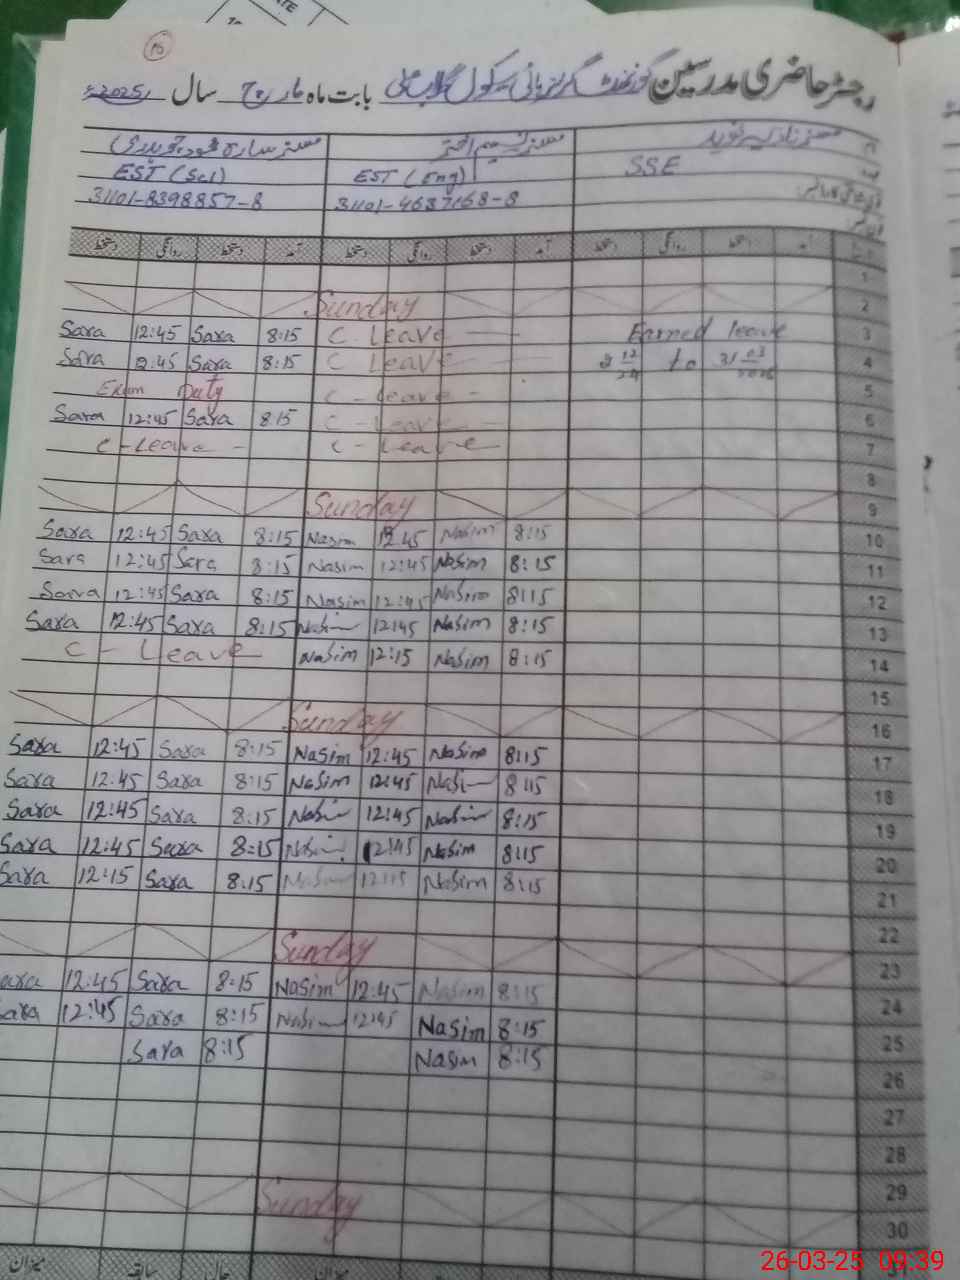 15
رجسٹر حاضری مدرسین گورنمنٹ گرلز ہائی سکول بابت ماہ مارچ سال 2025ء
مسز نادیہ نوید مسز نسیم اختر مسز سارہ
EST (Sci) EST (Eng) SSE
31101-8398857-8 31101-4637168-8
دستخط روانگی دستخط آمد دستخط روانگی دستخط آمد دستخط روانگی دستخط آمد
1
Sunday 2
Sara 12:45 Sara 8:15 C Leave Earned leave 3
Sara 12:45 Sara 8:15 C Leave to 31 03 4
Exam Duty C - Leave - 5
Sara 12:45 Sara 8:15 C - Leave - 6
C - Leave - C - Leave 7
8
Sunday 9
Sara 12:45 Sara 8:15 Nasim 12:45 Nasim 8:15 10
Sara 12:45 Sara 8:15 Nasim 12:45 Nasim 8:15 11
Sara 12:45 Sara 8:15 Nasim 12:45 Nasim 8:15 12
Sara 12:45 Sara 8:15 Nasim 12:45 Nasim 8:15 13
C - Leave Nasim 12:15 Nasim 8:15 14
15
Sunday 16
Sara 12:45 Sara 8:15 Nasim 12:45 Nasim 8:15 17
Sara 12:45 Sara 8:15 Nasim 12:45 Nasim 8:15 18
Sara 12:45 Sara 8:15 Nasim 12:45 Nasim 8:15 19
Sara 12:45 Sara 8:15 Nasim 12:45 Nasim 8:15 20
Sara 12:15 Sara 8:15 Nasim 12:15 Nasim 8:15 21
22
Sunday 23
ara 12:45 Sara 8:15 Nasim 12:45 Nasim 8:15 24
ara 12:45 Sara 8:15 Nasim 12:45 Nasim 8:15 25
Sara 8:15 Nasim 8:15 26
27
28
29
Sunday 30
میزان سابقہ حال میزان
26-03-25 09:39